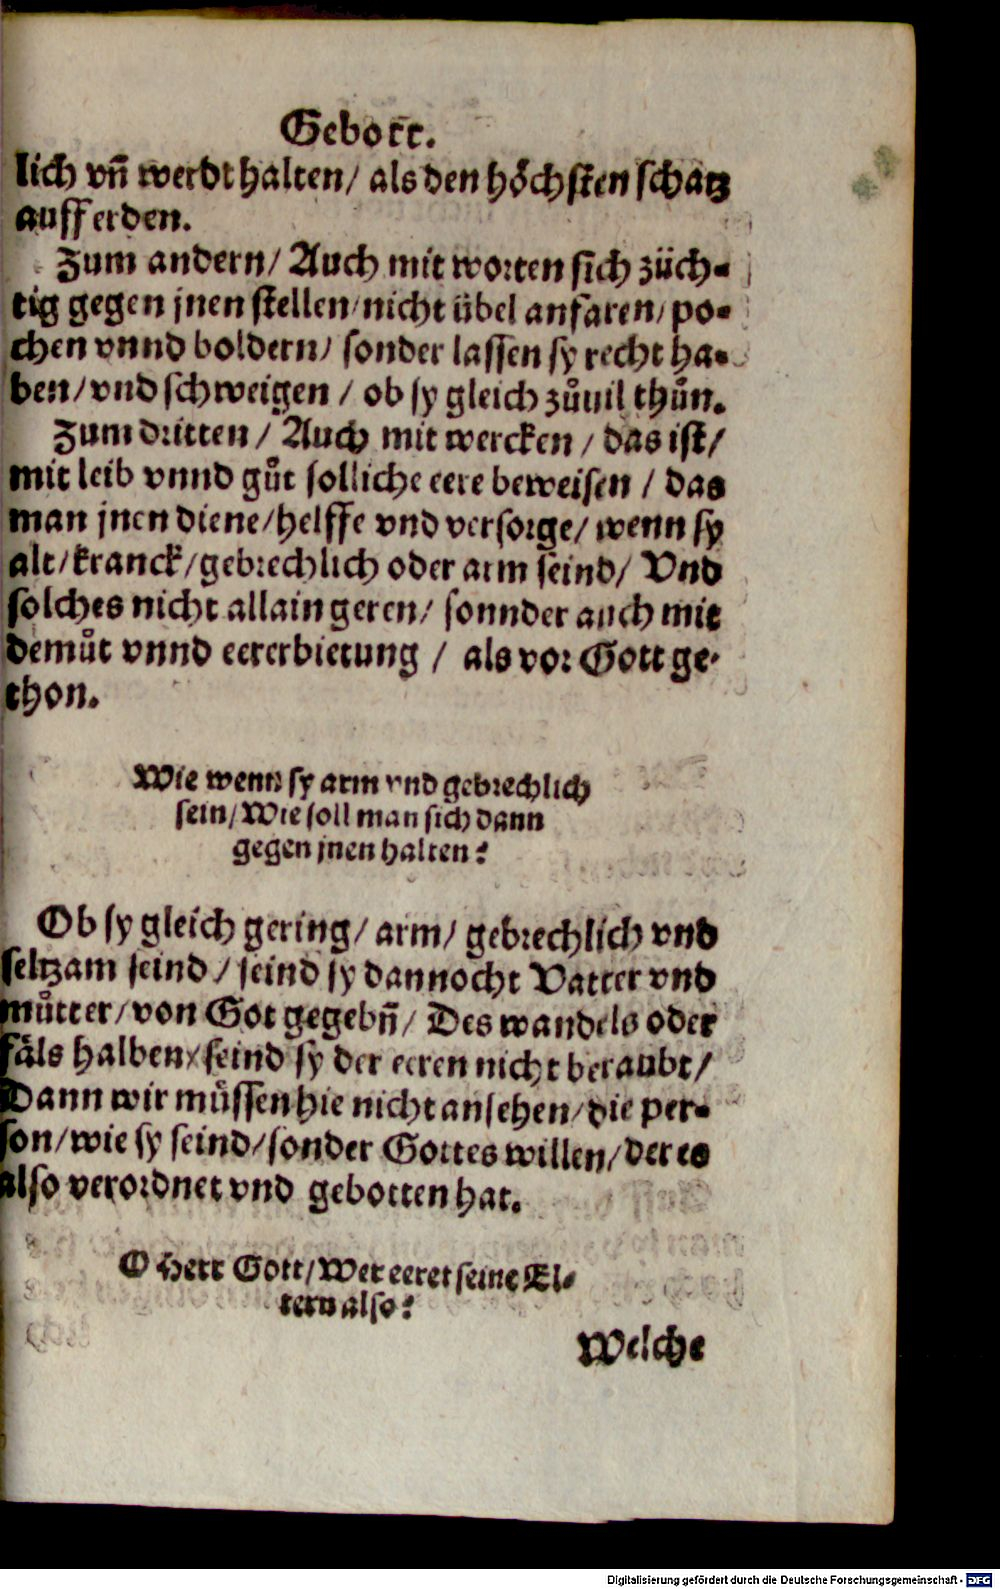 Gebott.
lich vñ werdt halten/ als den höchsten schatz
auff erden.
Zum andern/ Auch mit worten sich züch-
tig gegen jnen stellen/ nicht übel anfaren/ po-
chen vnnd boldern/ sonder lassen sy recht ha-
ben/ vnd schweigen / ob sy gleich zůuil thůn.
Zum dritten / Auch mit wercken / das ist/
mit leib vnnd gůt solliche eere beweisen / das
man jnen diene/ helffe vnd versorge/ wenn sy
alt/ kranck/ gebrechlich oder arm seind/ Vnd
solches nicht allain geren/ sonnder auch mit
demůt vnnd eererbietung / als vor Gott ge-
thon.
Wie wenn sy arm vnd gebrechlich
sein/ Wie soll man sich dann
gegen jnen halten?
Ob sy gleich gering/ arm/ gebrechlich vnd
seltzam seind / seind sy dannocht Vatter vnd
můtter/ von Got gegebñ/ Des wandels oder
fäls halben/ seind sy der eeren nicht beraubt/
Dann wir müssen hie nicht ansehen/ die per-
son/ wie sy seind/ sonder Gottes willen/ der es
also verordnet vnd gebotten hat.
O Herr Gott/ Wer eeret seine El-
tern also?
Welche
Digitalisierung gefördert durch die Deutsche Forschungsgemeinschaft - DFG